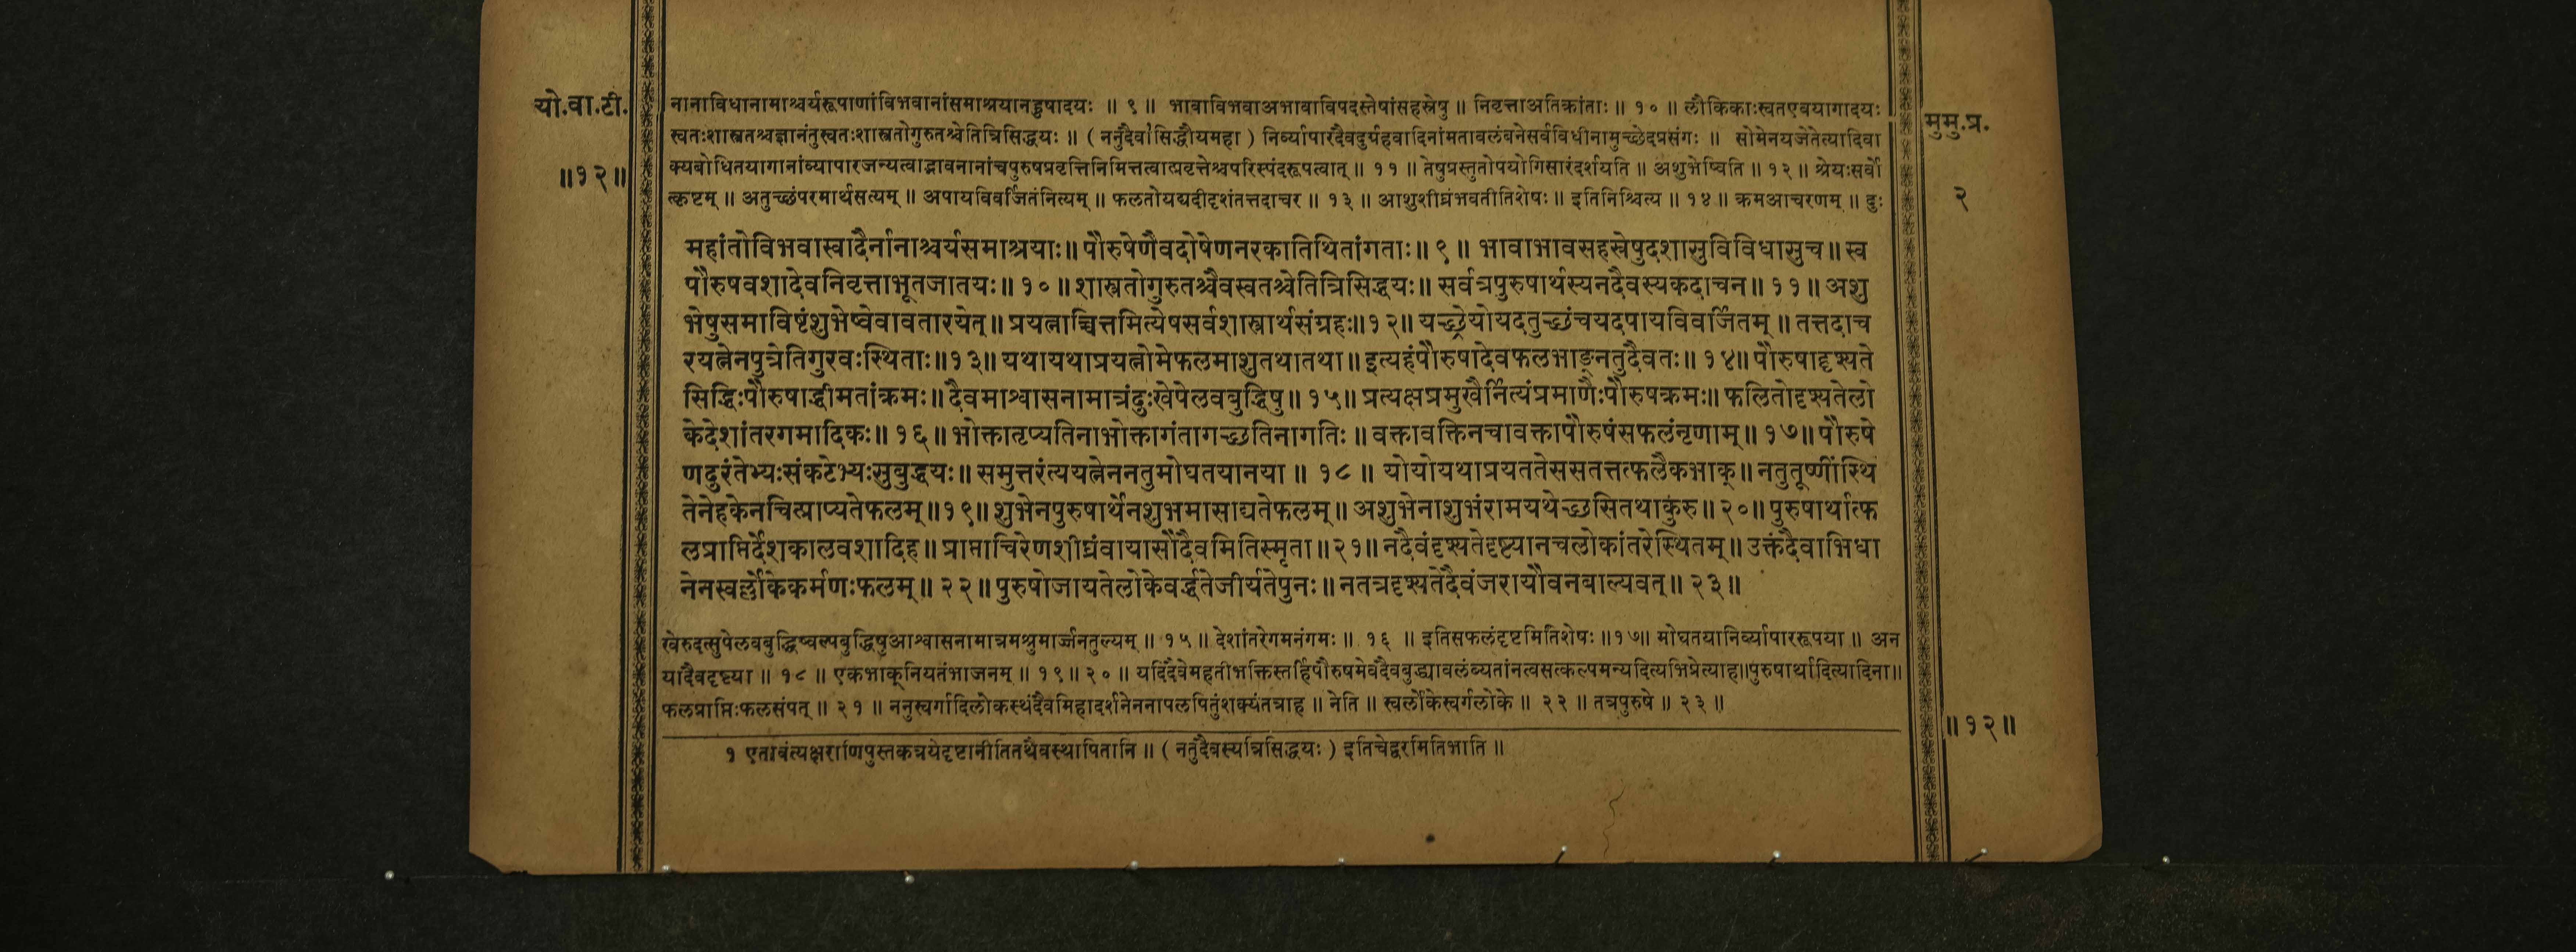 यो.वा.टी.
॥१२॥
नानाविधानामाश्चर्यरूपाणांविभवानांसमाश्रयानहुषादयः ॥ ९ ॥ भावाविभवाअभावाविपदस्तेषांसहस्रेषु ॥ निवृत्ताअतिक्रांताः ॥ १० ॥ लौकिकाःस्वतएवयागादयः
स्वतःशास्त्रतश्चज्ञानंतुस्वतःशास्त्रतोगुरुतश्चेतित्रिसिद्धयः ॥ ( ननुदैवा१सिद्धौयमहा ) निर्व्यापारदैवदुर्ग्रहवादिनांमतावलंबनेसर्वविधीनामुच्छेदप्रसंगः ॥ सोमेनयजेतेत्यादिवा
क्यबोधितयागानांव्यापारजन्यत्वाद्भावनानांचपुरुषप्रवृत्तिनिमित्तत्वात्प्रवृत्तेश्चपरिस्पंदरूपत्वात् ॥ ११ ॥ तेषुप्रस्तुतोपयोगिसारंदर्शयति ॥ अशुभेष्विति ॥ १२ ॥ श्रेयःसर्वो
त्कृष्टम् ॥ अतुच्छंपरमार्थसत्यम् ॥ अपायविवर्जितंनित्यम् ॥ फलतोयद्यदीदृशंतत्तदाचर ॥ १३ ॥ आशुशीघ्रंभवतीतिशेषः ॥ इतिनिश्चित्य ॥ १४ ॥ क्रमआचरणम् ॥ दुः
महांतोविभवास्वादैर्नानाश्चर्यसमाश्रयाः॥ पौरुषेणैवदोषेणनरकातिथितांगताः॥ ९ ॥ भावाभावसहस्रेषुदशासुविविधासुच ॥ स्व
पौरुषवशादेवनिवृत्ताभूतजातयः॥ १० ॥ शास्त्रतोगुरुतश्चैवस्वतश्चेतित्रिसिद्धयः॥ सर्वत्रपुरुषार्थस्यनदैवस्यकदाचन॥ ११ ॥ अशु
भेषुसमाविष्टंशुभेष्वेवावतारयेत्॥ प्रयत्नाच्चित्तमित्येषसर्वशास्त्रार्थसंग्रहः॥१२॥ यच्छ्रेयोयदतुच्छंचयदपायविवर्जितम् ॥ तत्तदाच
रयत्नेनपुत्रेतिगुरवःस्थिताः॥१३॥ यथायथाप्रयत्नोमेफलमाशुतथातथा॥ इत्यहंपौरुषादेवफलभाङ्नतुदैवतः॥ १४॥ पौरुषाद्दृश्यते
सिद्धिःपौरुषाद्धीमतांक्रमः॥ दैवमाश्वासनामात्रंदुःखेपेलवबुद्धिषु॥ १५॥ प्रत्यक्षप्रमुखैर्नित्यंप्रमाणैःपौरुषक्रमः॥ फलितोदृश्यतेलो
केदेशांतरगमादिकः॥ १६॥ भोक्तातृप्यतिनाभोक्तागंतागच्छतिनागतिः ॥ वक्तावक्तिनचावक्तापौरुषंसफलंनृणाम्॥ १७॥ पौरुषे
णदुरंतेभ्यःसंकटेभ्यःसुबुद्धयः॥ समुत्तरंत्ययत्नेननतुमोघतयानया ॥ १८ ॥ योयोयथाप्रयततेससतत्तत्फलैकभाक्॥ नतुतूष्णींस्थि
तेनेहकेनचित्प्राप्यतेफलम्॥१९॥ शुभेनपुरुषार्थेनशुभमासाद्यतेफलम्॥ अशुभेनाशुभंरामयथेच्छसितथाकुरु॥ २०॥ पुरुषार्थात्फ
लप्राप्तिर्देशकालवशादिह॥ प्राप्ताचिरेणशीघ्रंवायासौदैवमितिस्मृता॥२१॥ नदैवंदृश्यतेदृष्ट्यानचलोकांतरेस्थितम्॥ उक्तंदैवाभिधा
नेनस्वर्लोकेकर्मणःफलम्॥ २२॥ पुरुषोजायतेलोकेवर्द्धतेजीर्यतेपुनः॥ नतत्रदृश्यतेदैवंजरायौवनबाल्यवत्॥ २३॥
खेरुदत्सुपेलवबुद्धिष्वल्पबुद्धिषुआश्वासनामात्रमश्रुमार्ज्जनतुल्यम् ॥ १५ ॥ देशांतरेगमनंगमः ॥ १६ ॥ इतिसफलंदृष्टमितिशेषः ॥१७॥ मोघतयानिर्व्यापाररूपया ॥ अन
यादैवदृष्ट्या ॥ १८ ॥ एकभाक्नियतंभाजनम् ॥ १९॥ २० ॥ यदिदैवेमहतीभक्तिस्तर्हिपौरुषमेवदैवबुद्ध्यावलंब्यतांनत्वसत्कल्पमन्यदित्यभिप्रेत्याह॥पुरुषार्थादित्यादिना॥
फलप्राप्तिःफलसंपत् ॥ २१ ॥ ननुस्वर्गादिलोकस्थंदैवमिहादर्शनेननापलपितुंशक्यंतत्राह ॥ नेति ॥ स्वर्लोकेस्वर्गलोके ॥ २२ ॥ तत्रपुरुषे ॥ २३ ॥
१ एतावंत्यक्षराणिपुस्तकत्रयेदृष्टानीतितथैवस्थापितानि ॥ ( नतुदैवस्यत्रिसिद्धयः ) इतिचेद्वरमितिभाति ॥
मुमु.प्र.
२
॥१२॥